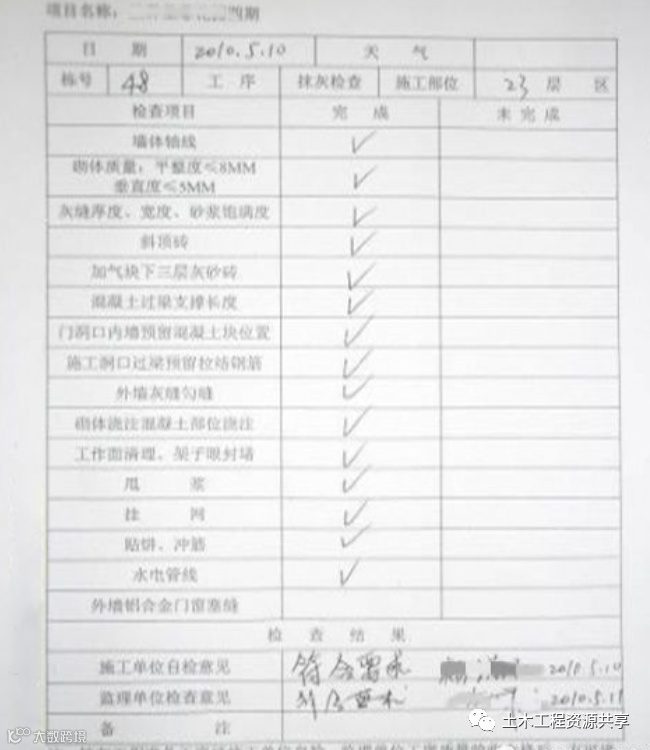 项目名称: 四期
日 期 2010.5.10 天 气
栋号 48 工 序 抹灰检查 施工部位 23 层 区
检查项目 完 成 未 完 成
墙体轴线 ✓
砌体质量：平整度≤8MM
垂直度≤5MM ✓
灰缝厚度、宽度、砂浆饱满度 ✓
斜顶砖 ✓
加气块下三层灰砂砖 ✓
混凝土过梁支撑长度 ✓
门洞口内墙预留混凝土块位置 ✓
施工洞口过梁预留拉结钢筋 ✓
外墙灰缝勾缝 ✓
砌体浇注混凝土部位浇注 ✓
工作面清理、架子眼封堵 ✓
甩 浆 ✓
挂 网 ✓
贴饼、冲筋 ✓
水电管线 ✓
外墙铝合金门窗塞缝
检 查 结 果
施工单位自检意见 符合要求 2010.5.10
监理单位检查意见 符合要求 2010.5.11
备 注
大数跨境
土木工程资源共享